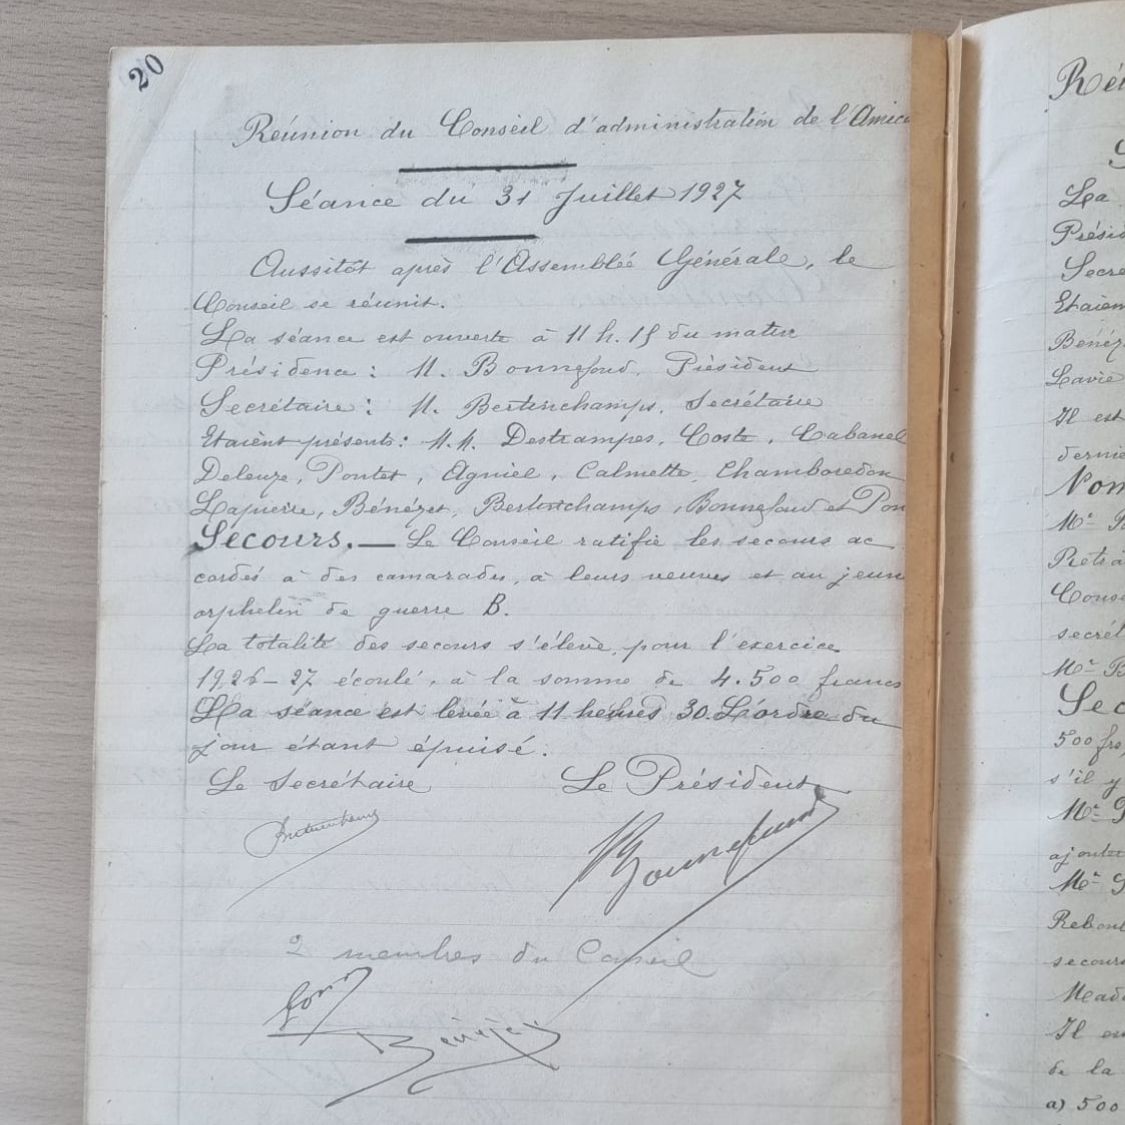 20
Réunion du Conseil d'administration de l'Amica
Séance du 31 Juillet 1927
Aussitôt après l'Assemblée Générale, le
Conseil se réunit.
La séance est ouverte à 11 h. 15 du matin
Présidence : M. Bonnefond, Président
Secrétaire : M. Bertinchamps, Secrétaire
Etaient présents : M.M. Destrampes, Coste, Cabanel
Deleuze, Pontet, Agniel, Calmette, Chamboredon
Lapierre, Bénézet, Bertinchamps, Bonnefond et Pon
Secours. — Le Conseil ratifie les secours ac
cordés à des camarades, à leurs veuves et au jeune
orphelin de guerre B.
La totalité des secours s'élève, pour l'exercice
1926-27 écoulé, à la somme de 4.500 francs
La séance est levée à 11 heures 30. L'ordre du
jour étant épuisé.
Le Secrétaire Le Président
Bonnefond
2 membres du Conseil
Bénézet
Réu
La
Présid
Secré
Etaien
Bénéz
Lavie
Il est
dernie
Nom
Mr B
Retra
Conse
secrét
Mr B
Sec
500 frs
s'il y
Mr P
ajoute
Mr G
Rebou
secours
Mada
Il es
de la
a) 500